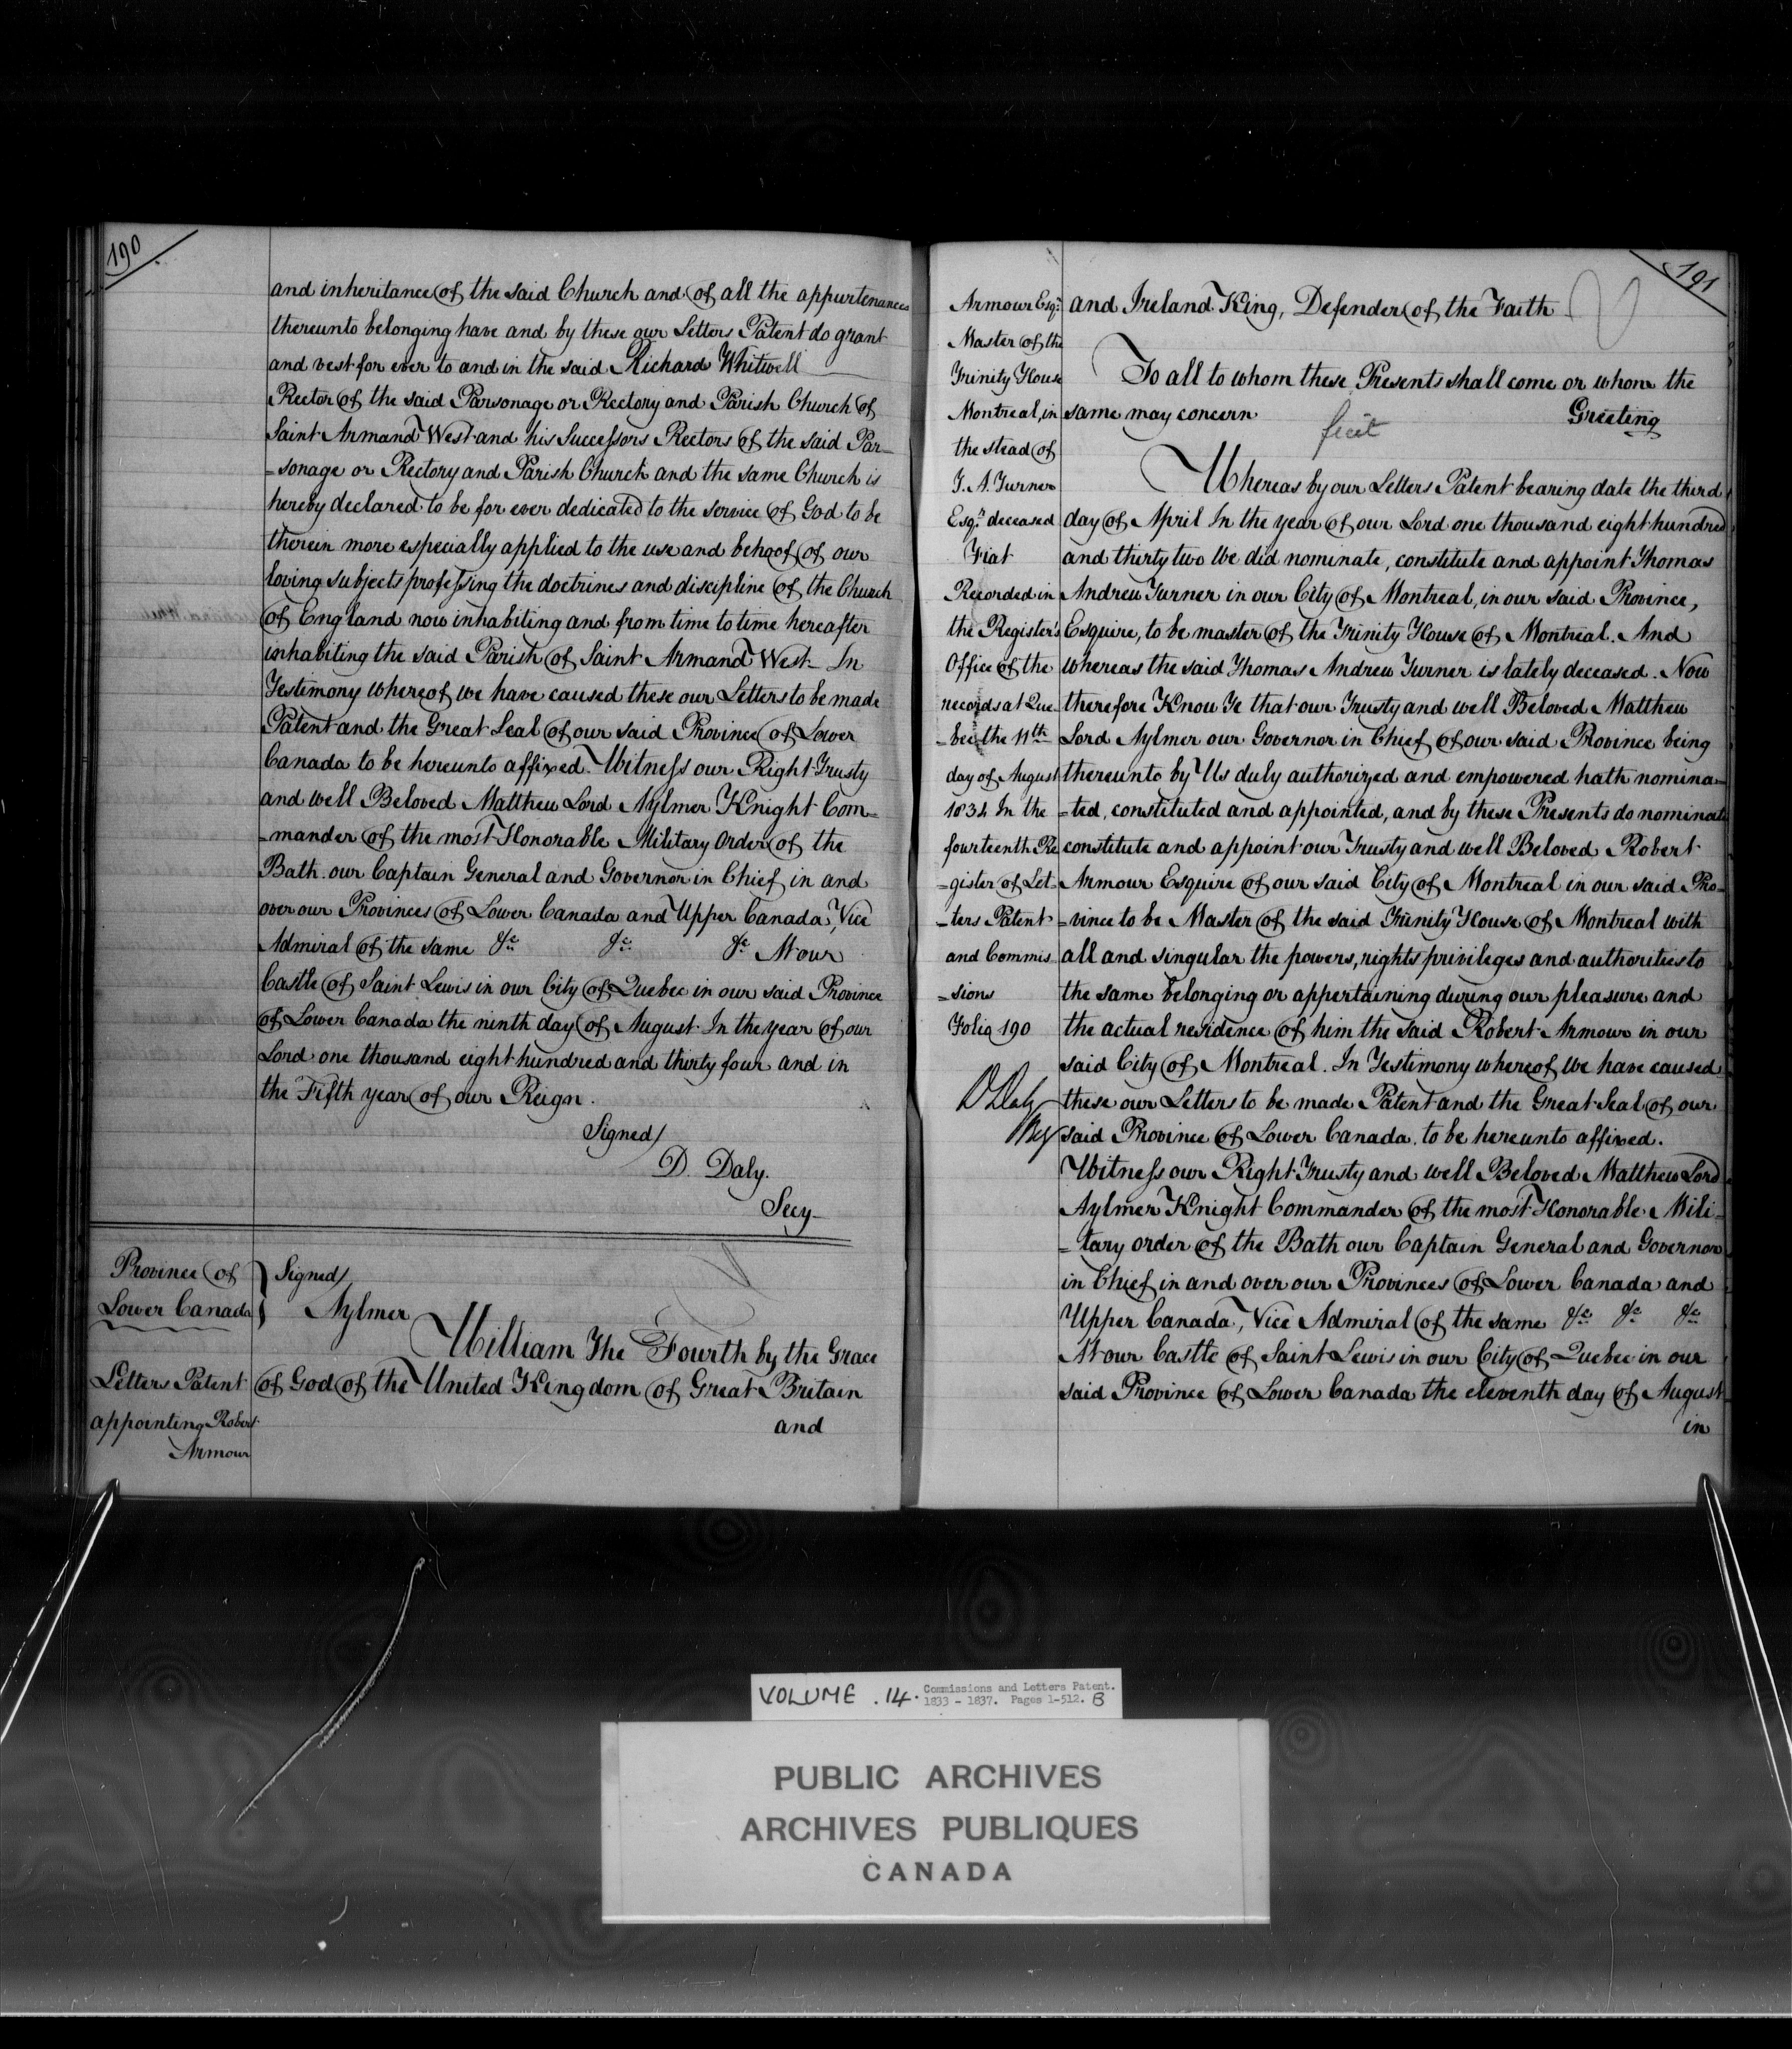 190
and inheritance of the said Church and of all the appurtenances
thereunto belonging have and by these our Letters Patent do grant
and vest for ever to and in the said Richard Whitwell
Rector of the said Parsonage or Rectory and Parish Church of
Saint Armand West and his Successors Rectors of the said Par-
=sonage or Rectory and Parish Church and the same Church is
hereby declared to be for ever dedicated to the service of God to be
therein more especially applied to the use and behoof of our
loving subjects professing the doctrines and discipline of the Church
of England now inhabiting and from time to time hereafter
inhabiting the said Parish of Saint Armand West In
Testimony whereof we have caused these our Letters to be made
Patent and the Great Seal of our said Province of Lower
Canada to be hereunto affixed. Witness our Right Trusty
and well Beloved Matthew Lord Aylmer Knight Com=
=mander of the most Honorable Military Order of the
Bath our Captain General and Governor in Chief in and
over our Provinces of Lower Canada and Upper Canada, Vice
Admiral of the same &c &c &c At our
Castle of Saint Lewis in our City of Quebec in our said Province
of Lower Canada the ninth day of August In the year of our
Lord one thousand eight hundred and thirty four and in
the Fifth year of our Reign.
Signed/
D. Daly.
Secy
Province of
Lower Canada
Signed/
Aylmer
William The Fourth by the Grace
of God of the United Kingdom of Great Britain
and
Letters Patent
appointing Robert
Armour
191
Armour Esqr.
Master of the
Trinity House
Montreal, in
the stead of
T. A. Turner
Esqr. deceased
Fiat
Recorded in
the Register's
Office of the
records at Que-
=bec the 11th
day of August
1834 In the
fourteenth Re
=gister of Let=
=ters Patent
and Commis=
=sions
Folio 190
D Daly
Reg
and Ireland King, Defender of the Faith
To all to whom these Presents shall come or whom the
same may concern Greeting
fecit
Whereas by our Letters Patent bearing date the third
day of April In the year of our Lord one thousand eight hundred
and thirty two We did nominate, constitute and appoint Thomas
Andrew Turner in our City of Montreal, in our said Province,
Esquire, to be master of the Trinity House of Montreal. And
whereas the said Thomas Andrew Turner is lately deceased. Now
therefore Know Ye that our Trusty and well Beloved Matthew
Lord Aylmer our Governor in Chief of our said Province being
thereunto by Us duly authorized and empowered hath nomina=
=ted, constituted and appointed, and by these Presents do nominate
constitute and appoint our Trusty and well Beloved Robert
Armour Esquire of our said City of Montreal in our said Pro=
=vince to be Master of the said Trinity House of Montreal with
all and singular the powers, rights privileges and authorities to
the same belonging or appertaining during our pleasure and
the actual residence of him the said Robert Armour in our
said City of Montreal. In Testimony whereof We have caused
these our Letters to be made Patent and the Great Seal of our
said Province of Lower Canada to be hereunto affixed.
Witness our Right Trusty and well Beloved Matthew Lord
Aylmer Knight Commander of the most Honorable Mili=
=tary order of the Bath our Captain General and Governor
in Chief in and over our Provinces of Lower Canada and
Upper Canada, Vice Admiral of the same &c &c &c
At our Castle of Saint Lewis in our City of Quebec in our
said Province of Lower Canada the eleventh day of August
in
VOLUME .14. Commissions and Letters Patent.
1833 - 1837. Pages 1-512. B
PUBLIC ARCHIVES
ARCHIVES PUBLIQUES
CANADA